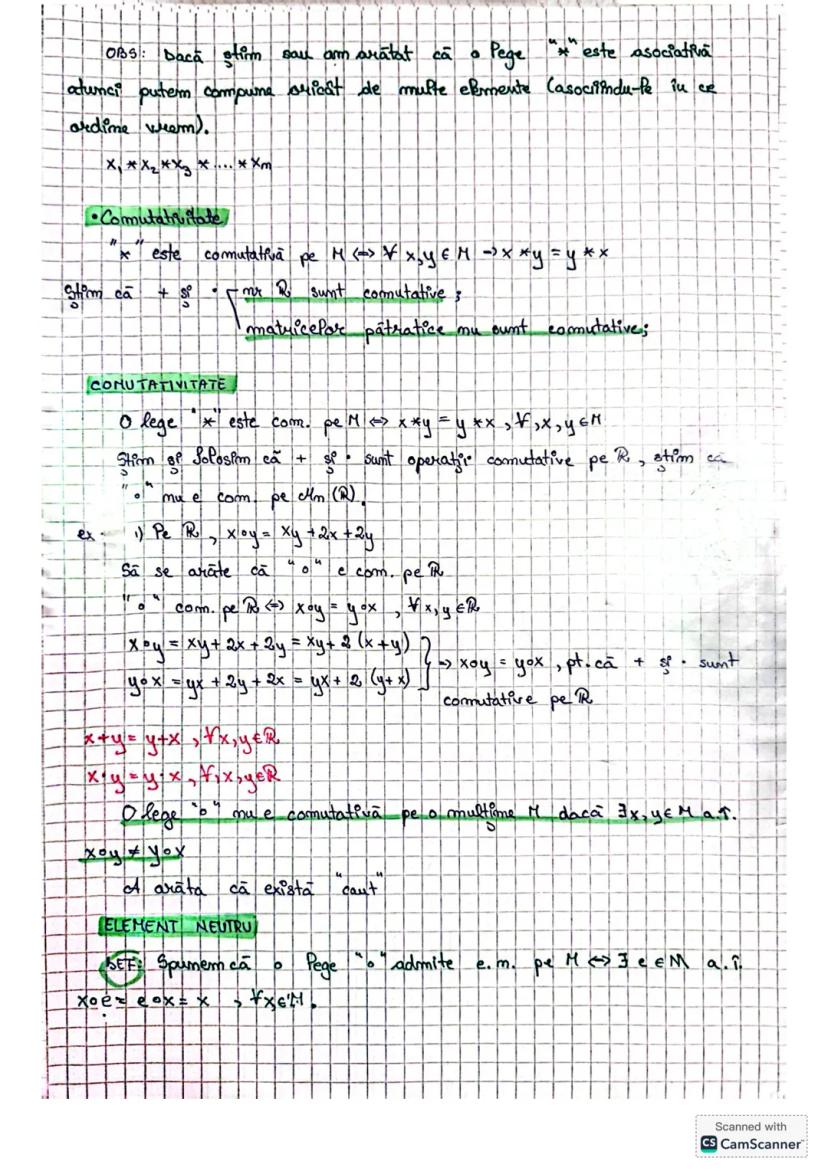 OBS: Dacă știm sau am arătat că o lege "*" este asociativă
atunci putem compune oricât de multe elemente (asociindu-le în ce
ordine vrem).
x₁ * x₂ * x₃ * .... * xₙ
• Comutativitate
"*" este comutativă pe M <=> ∀ x,y ∈ M -> x * y = y * x
Știm că + și · nr ℝ sunt comutative ;
matricelor pătratice nu sunt comutative;
COMUTATIVITATE
O lege "*" este com. pe M <=> x * y = y * x , ∀, x, y ∈ M
Știm și folosim că + și · sunt operații comutative pe ℝ , știm că
"∘" nu e com. pe Mn (ℝ).
ex · 1) Pe ℝ , x∘y = xy + 2x + 2y
Să se arate că "∘" e com. pe ℝ
"∘" com. pe ℝ <=> x∘y = y∘x , ∀ x, y ∈ ℝ
x∘y = xy + 2x + 2y = xy + 2 (x+y)
y∘x = yx + 2y + 2x = yx + 2 (y+x)
=> x∘y = y∘x , pt. că + și · sunt
comutative pe ℝ
x+y = y+x , ∀x,y∈ℝ
x·y = y·x , ∀, x, y∈ℝ
O lege "∘" nu e comutativă pe o mulțime M dacă ∃x, y∈M a.î.
x∘y ≠ y∘x
A arăta că există "caut"
ELEMENT NEUTRU
DEF: Spunem că o lege "∘" admite e.n. pe M <=> ∃ e ∈ M a.î.
x∘e = e∘x = x , ∀x∈M.
Scanned with
CS CamScanner